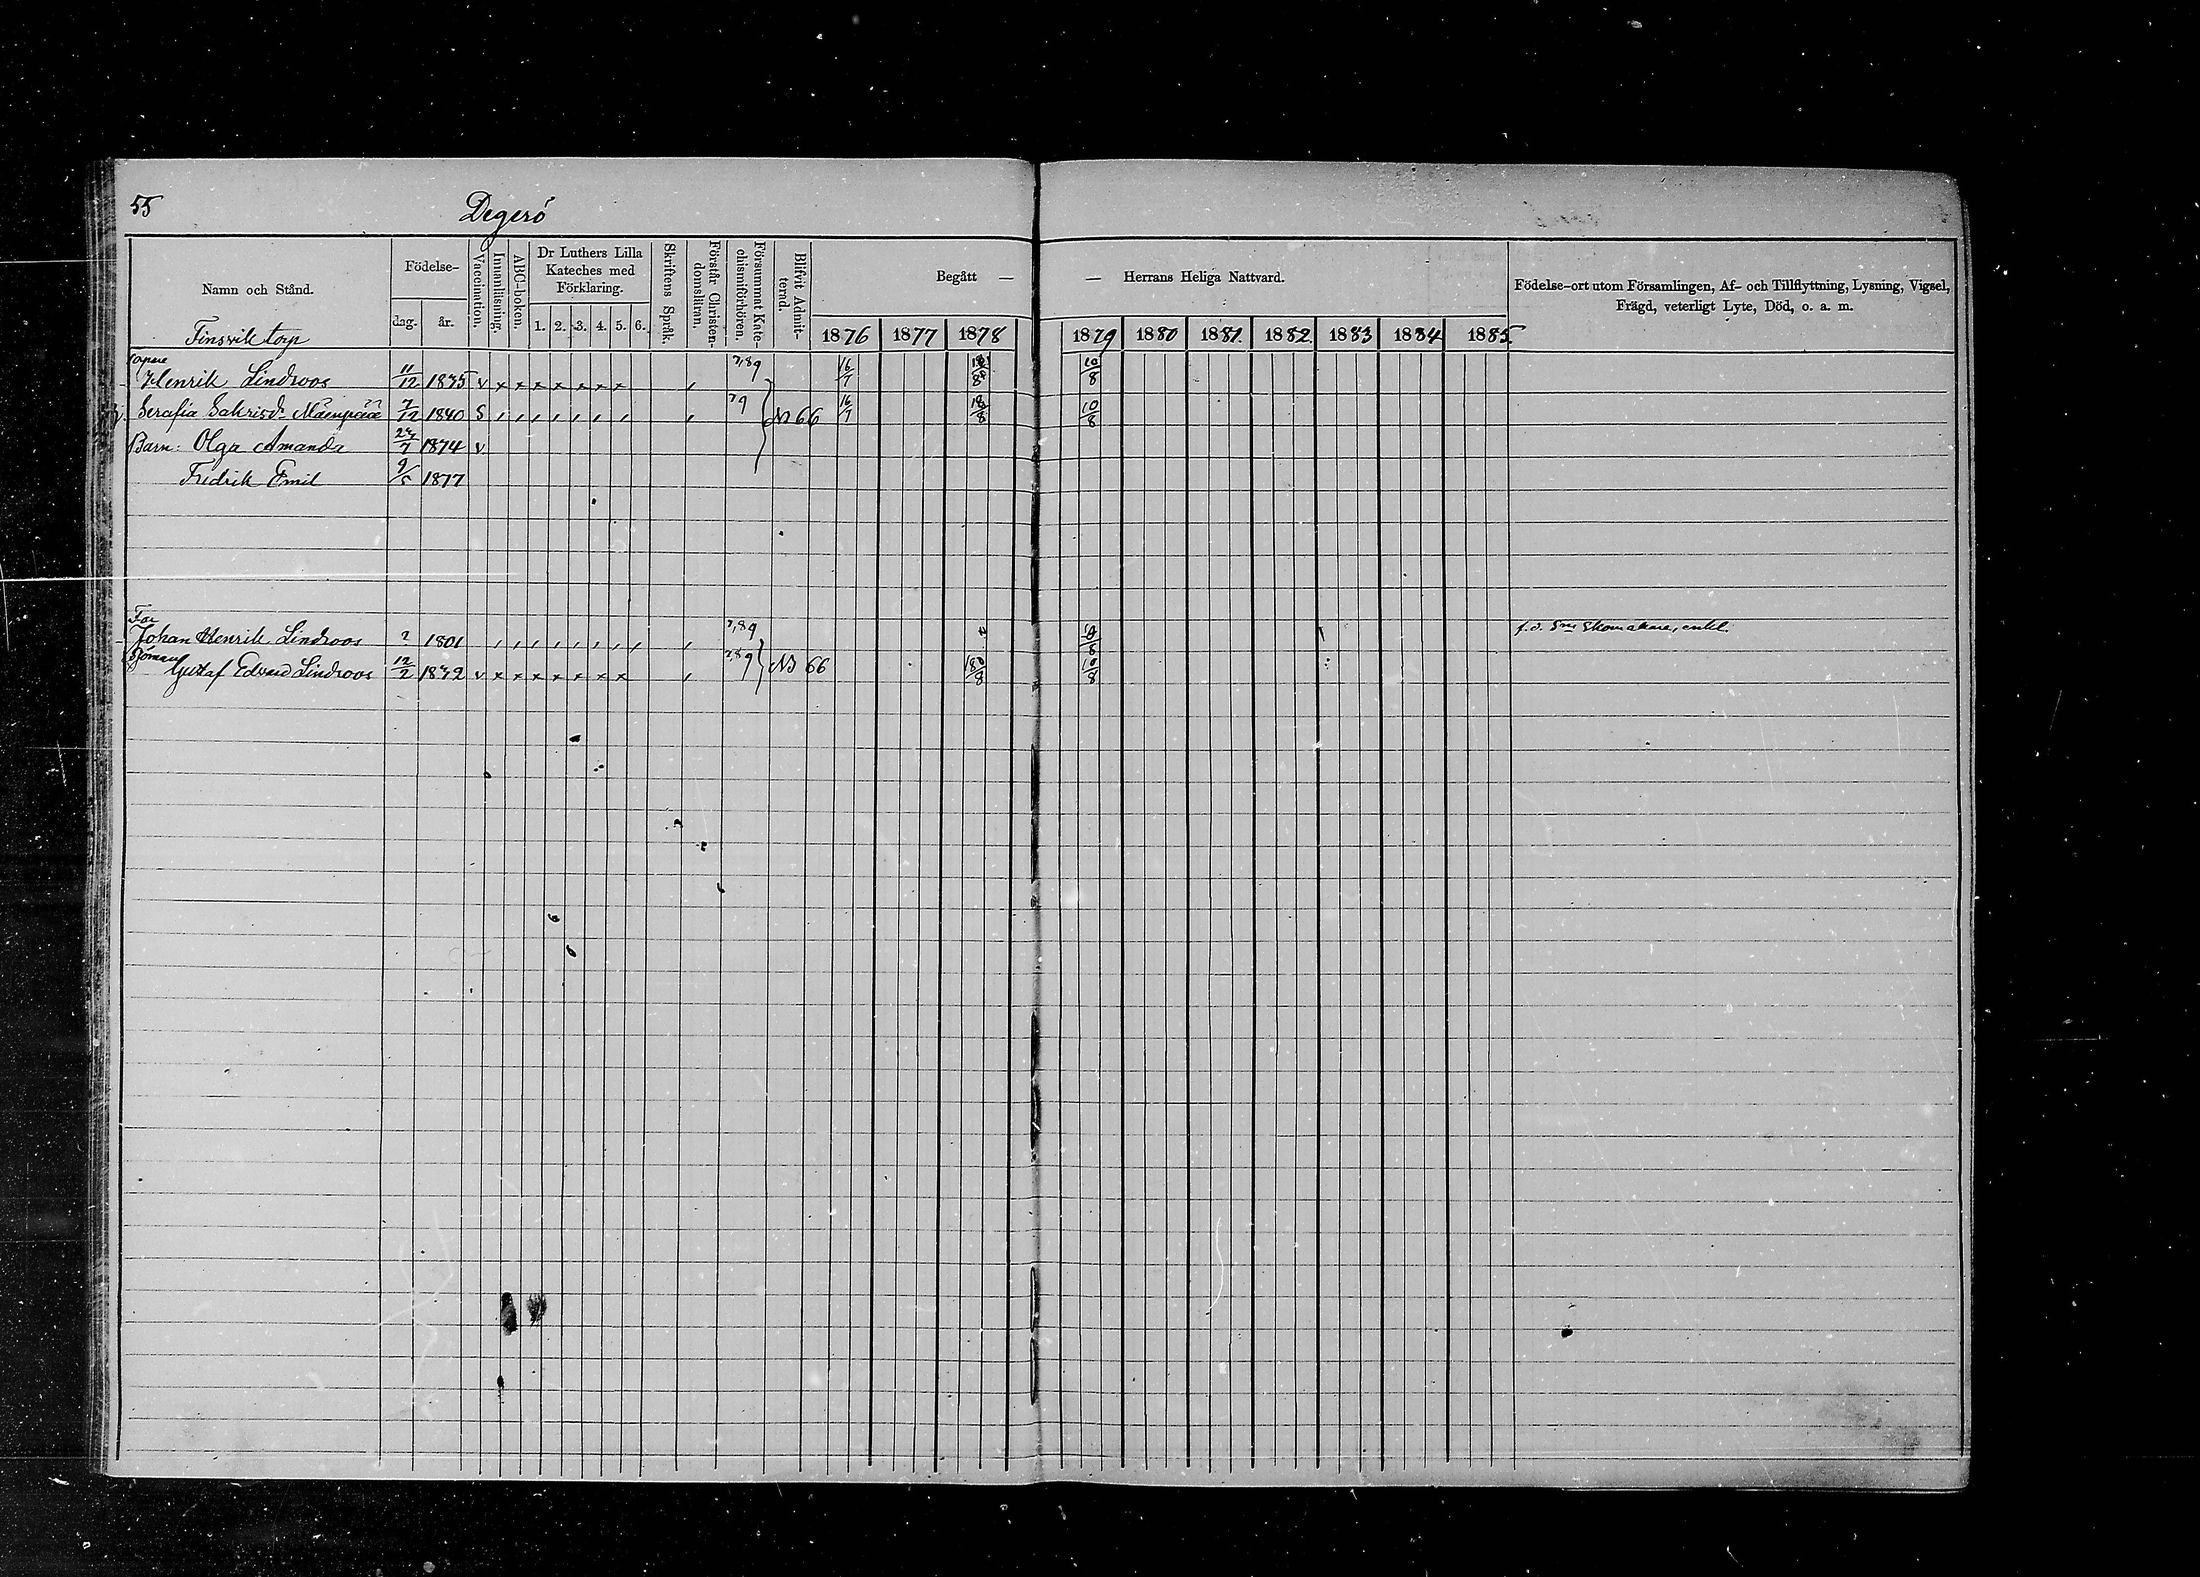 55
Degerö
Namn och Stånd.
Födelse-
dag.
år.
Vaccination.
Innanläsning.
ABC-boken.
Dr Luthers Lilla
Kateches med
Förklaring.
1. 2. 3. 4. 5. 6.
Skriftens Språk.
Förstår Christen-
domsläran.
Försummat Kate-
chismiförhören.
Blifvit Admit-
terad.
Begått —
— Herrans Heliga Nattvard.
1876 1877 1878 1879 1880 1881. 1882. 1883 1884 1885.
Födelse-ort utom Församlingen, Af- och Tillflyttning, Lysning, Vigsel,
Frägd, veterligt Lyte, Död, o. a. m.
Finsvik torp
Henrik Lindroos 11/12 1835 v x x x x x x x 7,8 9 16/7 18/8 10/8
Serafia Sakrisdr 7/12 1840 S 7 9 N 66 16/7 18/8 10/8
Barn: Olga Amanda 1874 v
Fredrik Emil 9/5 1877
Far
Johan Henrik Lindroos ? 1801 7,8 9
Sjöman
Gustaf Edvard Lindroos 12/2 1842 v x x x x x x x 7,8 9 N 66 18/8 10/8